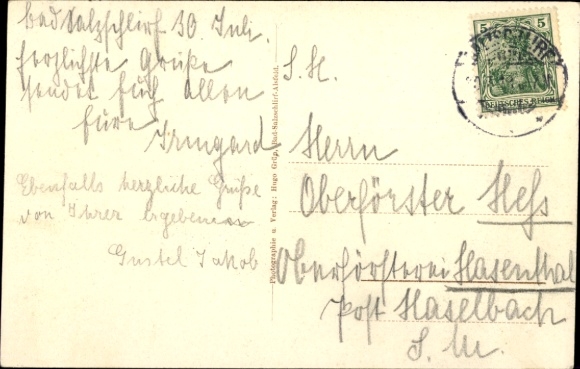 Bad Salzschlirf 30 Juli.
herzlichste Grüße
sendet Euch allen
Eure
Irmgard
Ebenfalls herzliche Grüße
von Ihrer ergebenen
Gustel Jakob
Photographie u. Verlag: Hugo Grüp, Bad-Salzschlirf-Alsfeld.
S. H.
Herrn
Oberförster Heß
Oberförsterei Hasenthal
Post Haselbach
S. M.
5 5
DEUTSCHES REICH